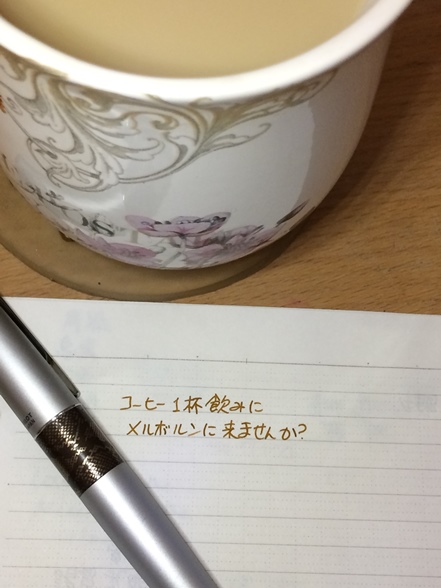 コーヒー1杯飲みに
メルボルンに来ませんか?